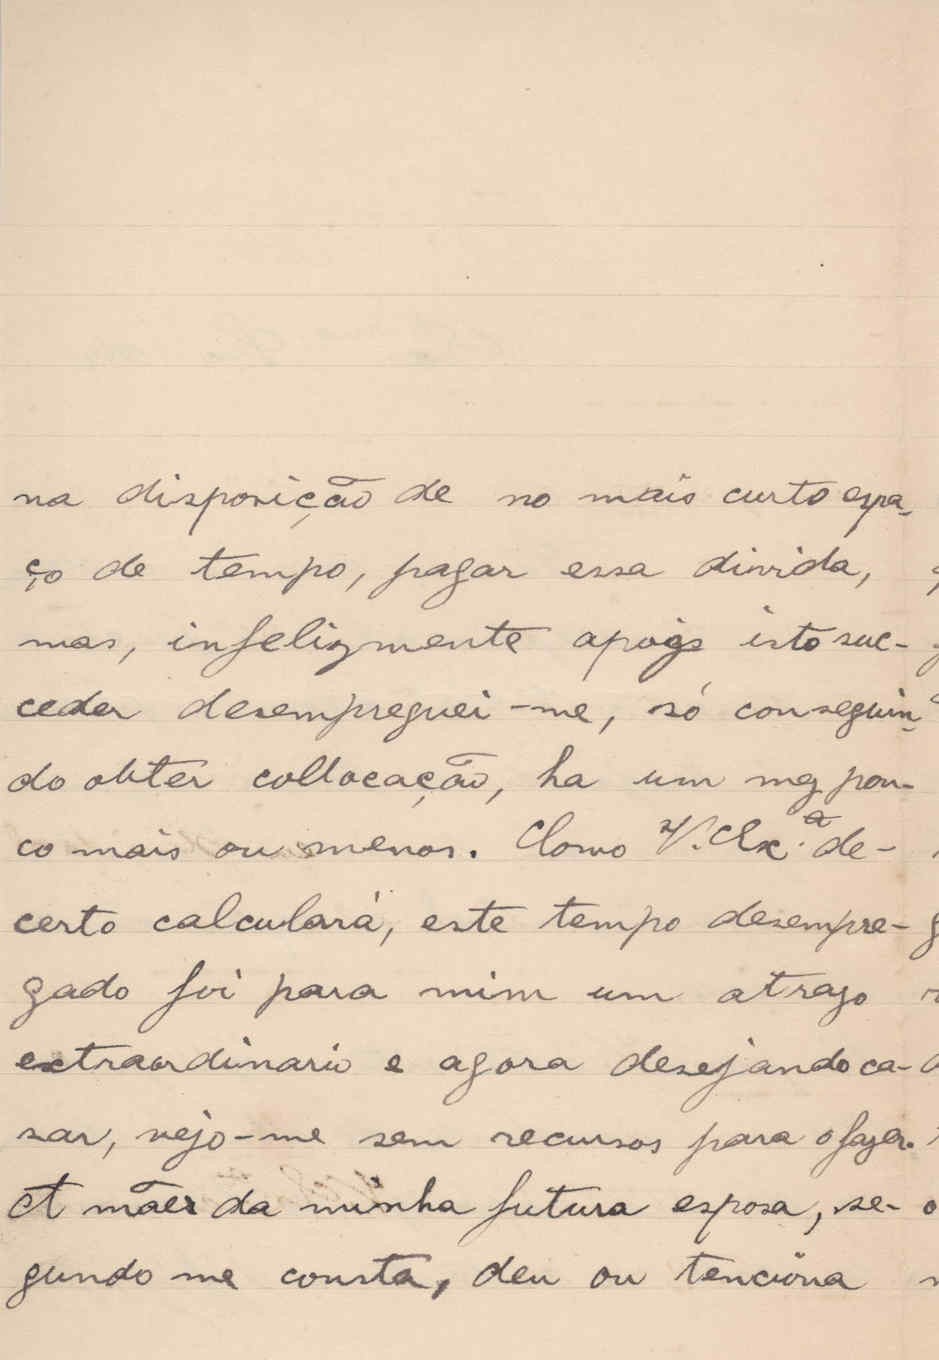 na disposição de no mais curto espa-
ço de tempo, pagar essa divida,
mas, infelizmente apois isto suc-
ceder desempreguei-me, só conseguin-
do obter collocação, ha um mez pou-
co mais ou menos. Como V. Ex.ª de-
certo calculará, este tempo desempre-
gado foi para mim um atrazo
extraordinario e agora desejando ca-
sar, vejo-me sem recursos para o fazer.
A mãe da minha futura esposa, se-
gundo me consta, deu ou tenciona